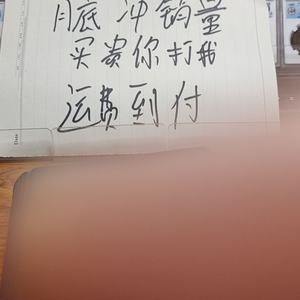 月底冲销量
买贵你打我
运费到付